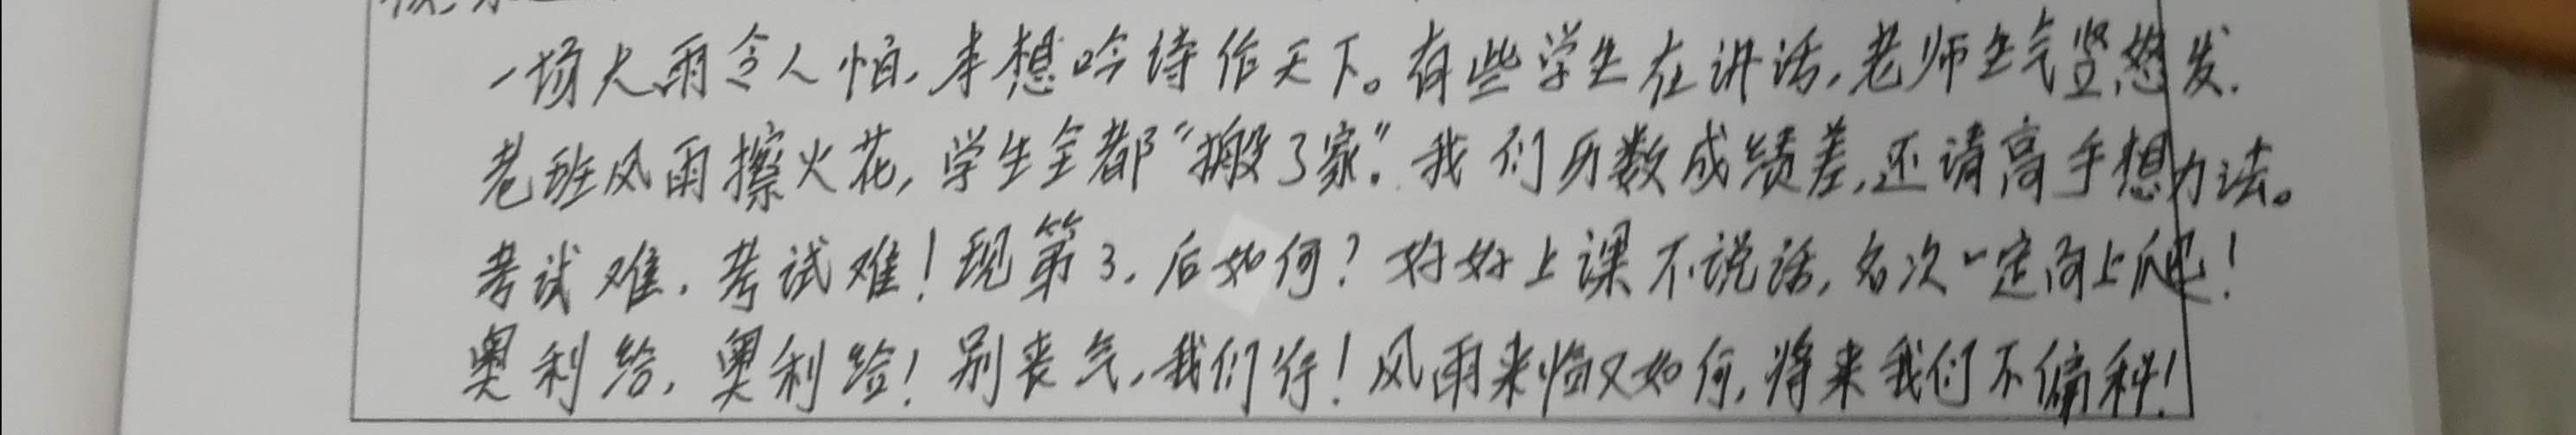 一场大雨令人怕,本想吟诗作天下。有些学生在讲话,老师生气竖怒发.
老班风雨擦火花,学生全都“搬了家”。我们历数成绩差,还请高手想办法。
考试难,考试难!现第3,后如何?好好上课不说话,名次一定向上爬!
奥利给,奥利给!别丧气,我们行!风雨来临又如何,将来我们不偏科!